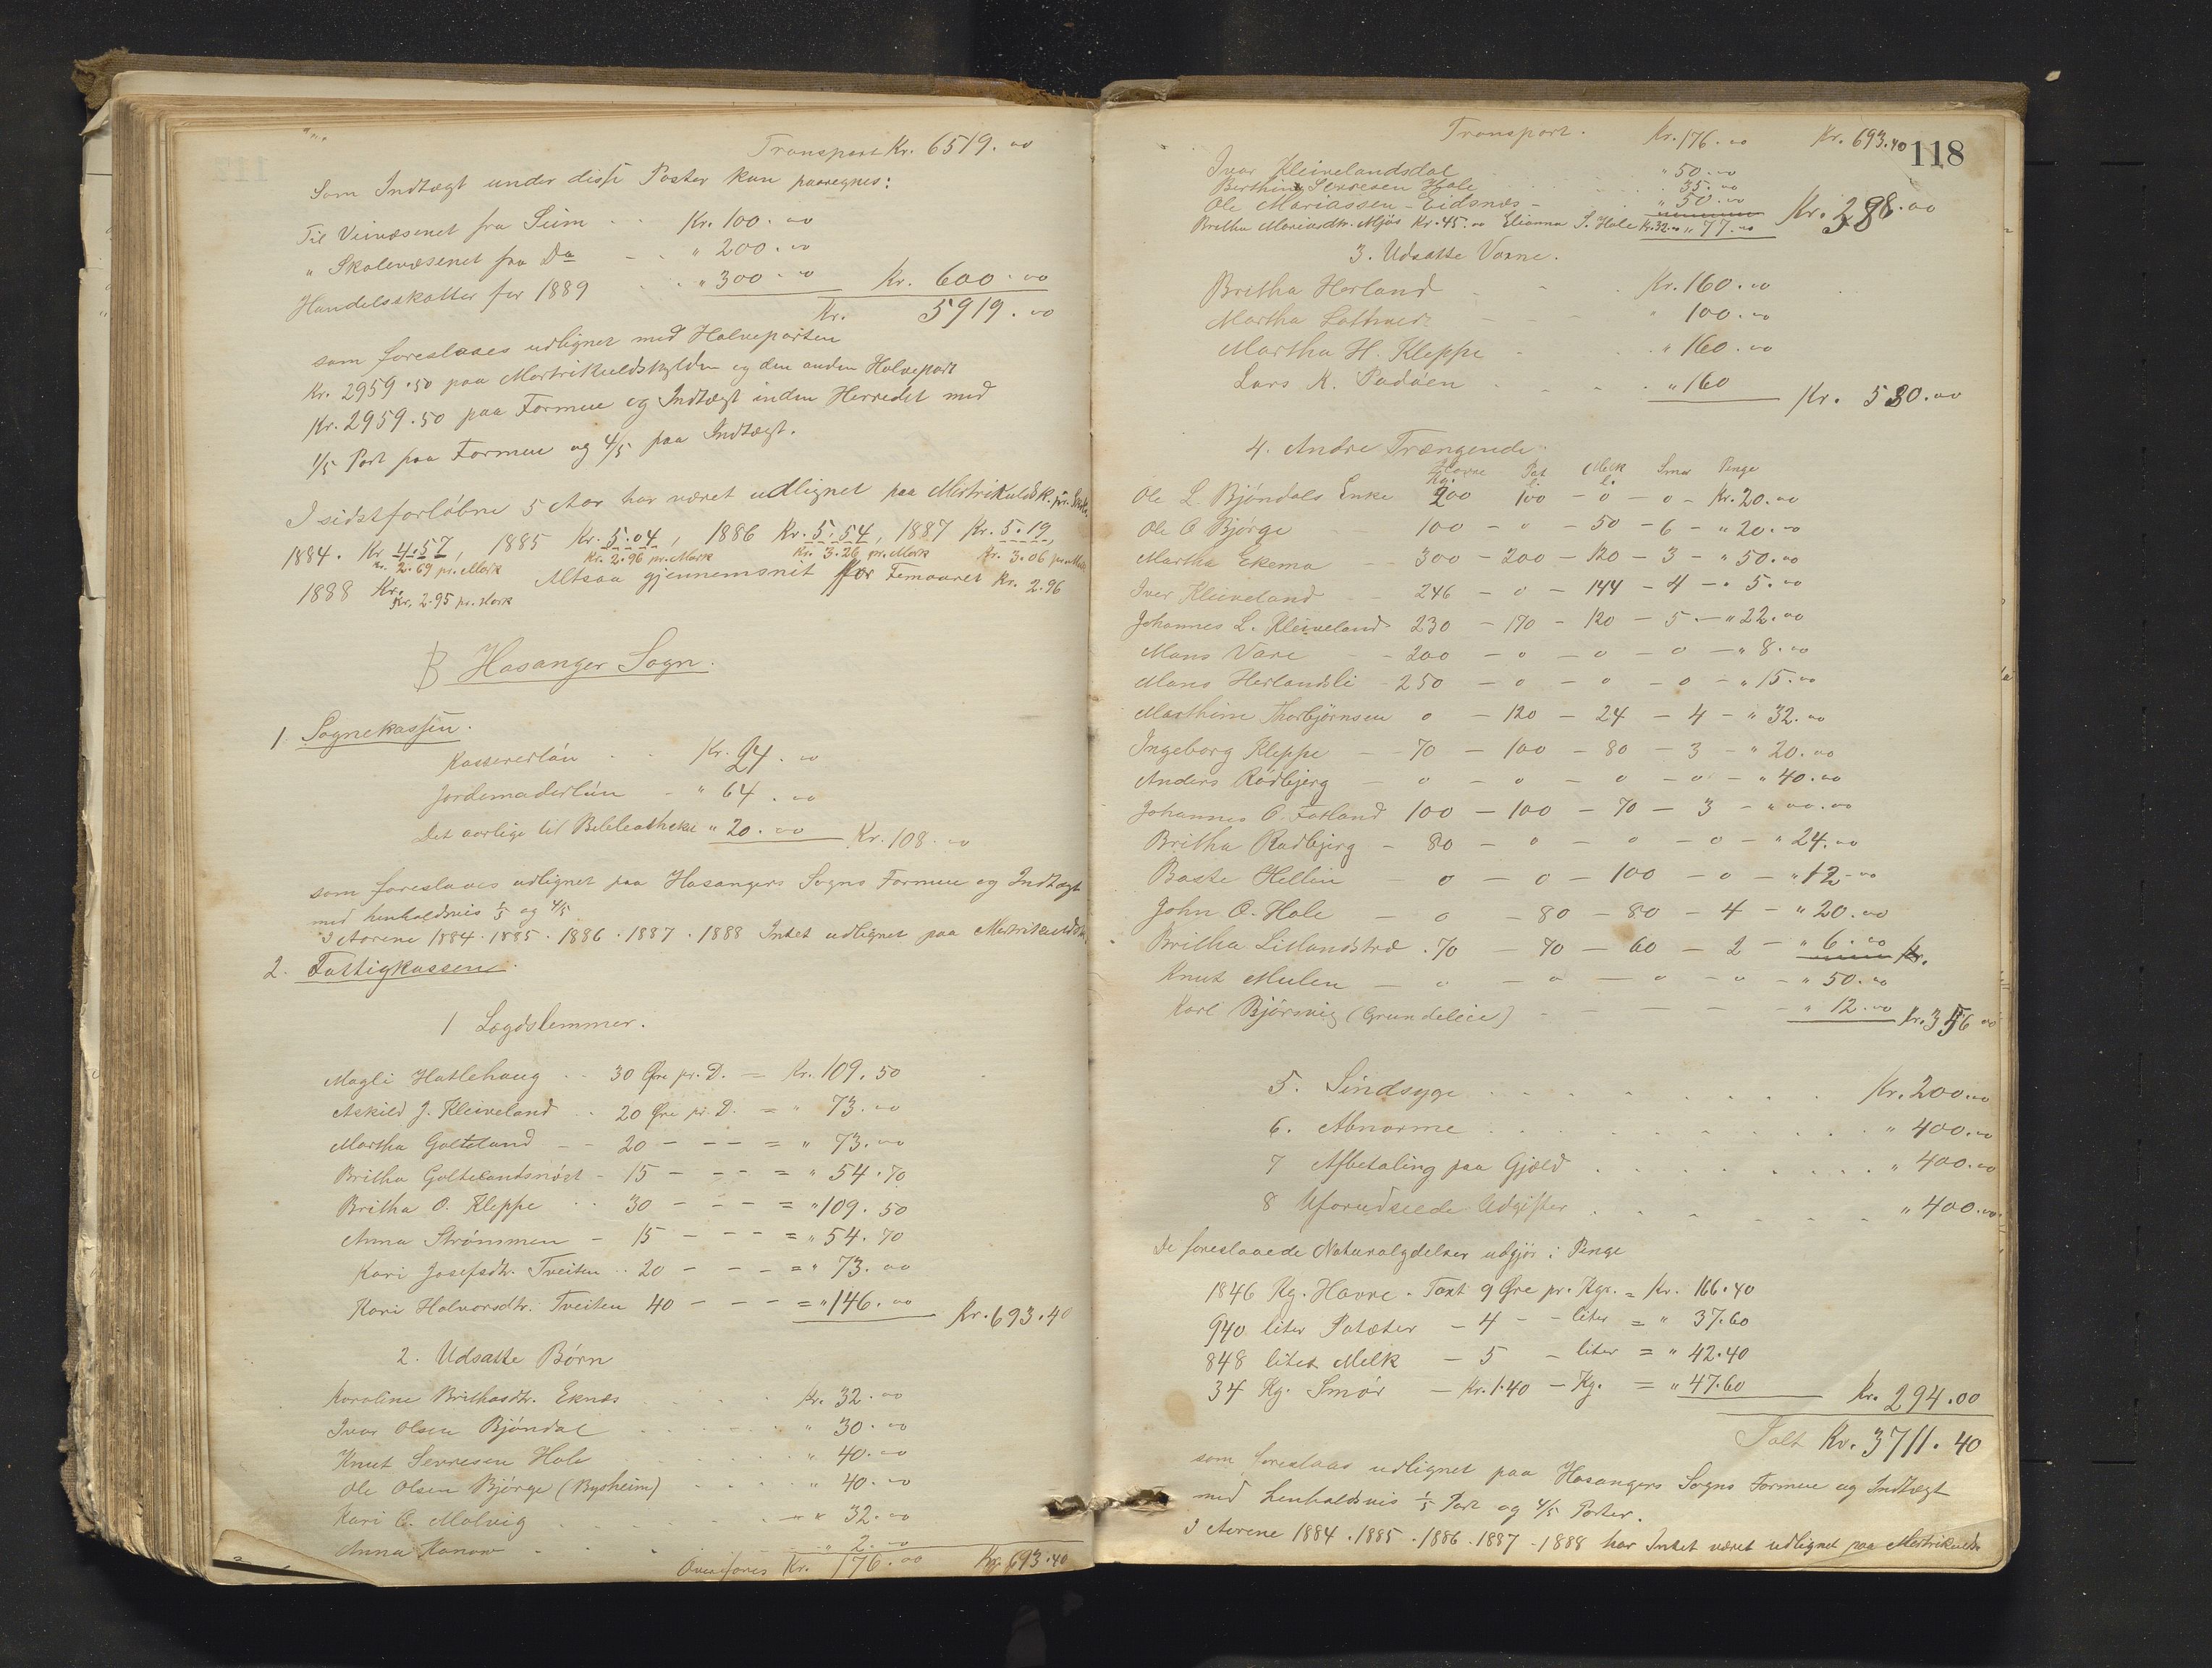 Transport Kr. 6519.00
Som Indtægt under disse Poster kan paaregnes:
Til Veivæsenet fra Seim Kr. 100.00
" Skolevæsenet fra Do " 200.00
Handelsskatter for 1889 " 300.00 Kr. 600.00
Kr. 5919.00
som foreslaaes udlignet med Halveparten
Kr. 2959.50 paa Matrikulskylden og den anden Halvepart
Kr. 2959.50 paa Formue og Indtægt inden Herredet med
1/5 Part paa Formue og 4/5 paa Indtægt.
I sidstforløbne 5 Aar har været udlignet paa Matrikulsk. pr. Skd.
1884. Kr 4.57, 1885 Kr. 5.04, 1886 Kr. 5.54, 1887 Kr. 5.19,
Kr. 2.69 pr. Mark Kr. 2.96 pr. Mark Kr. 3.26 pr. Mark Kr. 3.06 pr. Mark
1888 Kr. Altsaa gjennemsnit for Femaaret Kr. 2.96
Kr. 2.95 pr. Mark
B Hosanger Sogn.
1. Sognekassen.
Kassererløn Kr. 24.00
Jordemoderløn " 64.00
Det aarlige til Bibliotheket " 20.00 Kr. 108.00
som foreslaaes udlignet paa Hosangers Sogns Formue og Indtægt
med henholdsvis 1/5 og 4/5
I Aarene 1884. 1885. 1886. 1887. 1888 Intet udlignet paa Matrikulsk.
2. Fattigkassen.
1 Lægdslemmer.
Magli Hatlehaug 30 Øre pr. D. = Kr. 109.50
Askild J. Kleiveland 20 Øre pr. D. = " 73.00
Martha Golteland 20 - - - = " 73.00
Britha Goltelandsnøst 15 - - - = " 54.70
Britha O. Kleppe 30 - - - = " 109.50
Anna Strømmen 15 - - - = " 54.70
Kari Josefsdtr. Tveiten 20 - - - = " 73.00
Kari Halvorsdtr. Tveiten 40 - - - = " 146.00 Kr. 693.40
2. Udsatte Børn
Karoline Brithasdtr. Eknæs Kr. 32.00
Ivar Olsen Bjøndal " 30.00
Knut Severesen Hole " 40.00
Ole Olsen Bjørge (Bysheim) " 40.00
Kari O. Molvig " 32.00
Anna Kanow " 2.00
Overføres Kr. 176.00 Kr. 693.40
118
Transport. Kr. 176.00 Kr. 693.40
Ivar Kleivelandsdal " 50.00
Berthine Severesen Hole " 35.00
Ole Mariassen Eidsnæs " 50.00
Britha Mariasdtr. Mjøs Kr. 45.00 Elianna S. Hole Kr. 32.00 " 77.00 Kr. 388.00
3. Udsatte Voxne.
Britha Herland Kr. 160.00
Martha Loftmed. " 100.00
Martha H. Kleppe " 160.00
Lars K. Padøen " 160 Kr. 580.00
4. Andre Trængende.
Havre Pot. Melk Smør Penge
Kg. l. l.
Ole L. Bjøndals Enke 200 100 - 0 - 0 - Kr. 20.00
Ole O Bjørge 100 - 0 - 50 - 6 - " 20.00
Martha Ekemo 300 - 200 - 120 - 3 - " 50.00
Iver Kleiveland 246 - 0 - 144 - 4 - " 5.00
Johannes L. Kleiveland 230 - 170 - 120 - 5 - " 22.00
Mons Vare 200 - 0 - 0 - 0 - " 8.00
Mons Herlandsli - 250 - 0 - 0 - 0 - " 15.00
Marthine Thorbjørnsen 0 - 120 - 24 - 4 - " 32.00
Ingeborg Kleppe - 70 - 100 - 80 - 3 - " 20.00
Anders Rødbjerg - 0 - 0 - 0 - 0 - " 40.00
Johannes O. Fatland 100 - 100 - 70 - 3 - " 00.00
Britha Rødbjerg - 80 - 0 - 0 - 0 - " 24.00
Baste Hellin - 0 - 0 - 100 - 0 - " 12.00
John O. Hole - 0 - 80 - 80 - 4 - " 20.00
Britha Lislandstræ. 70 - 70 - 60 - 2 - " 6.00 Kr.
Knut Mulen - 0 - 0 - 0 - 0 - " 50.00
Karl Bjørsvig (Grundeleie) - " 12.00 Kr. 356.00
5. Sindsyge Kr. 200.00
6. Abnorme " 400.00
7 Afbetaling paa Gjæld " 400.00
8 Uforudseede Udgifter " 400.00
De foreslaaede Naturalydelser udgjør i Penge
1846 Kg. Havre. Taxt 9 Øre pr. Kgr. = Kr. 166.40
940 liter Potæter - 4 - - liter = " 37.60
848 liter Melk - 5 - liter = " 42.40
34 Kg. Smør - Kr. 1.40 - Kg. = " 47.60 Kr. 294.00
Ialt Kr. 3711.40
som foreslaas udlignet paa Hosangers Sogns Formue og Indtægt
med henholdsvis 1/5 Part og 4/5 Parter.
I Aarene 1884. 1885. 1886. 1887 - 1888 har Intet været udlignet paa Matrikulsk.